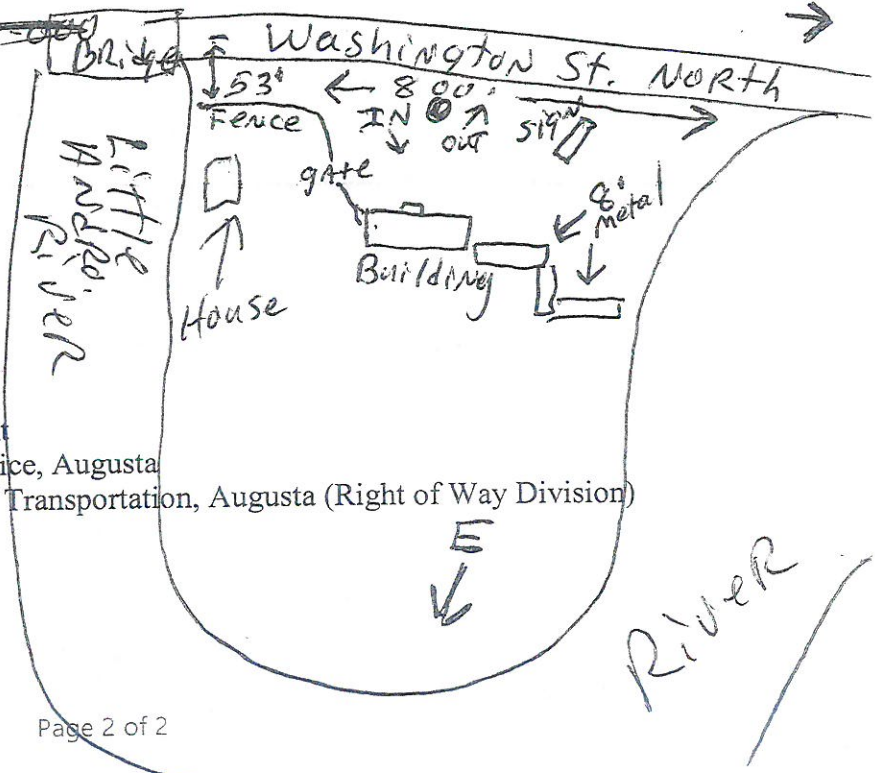 Bridge
Washington St. North
53'
800'
Fence
IN
OUT
sign
gate
8'
metal
Building
House
Little
Andro.
River
ice, Augusta
Transportation, Augusta (Right of Way Division)
E
River
Page 2 of 2